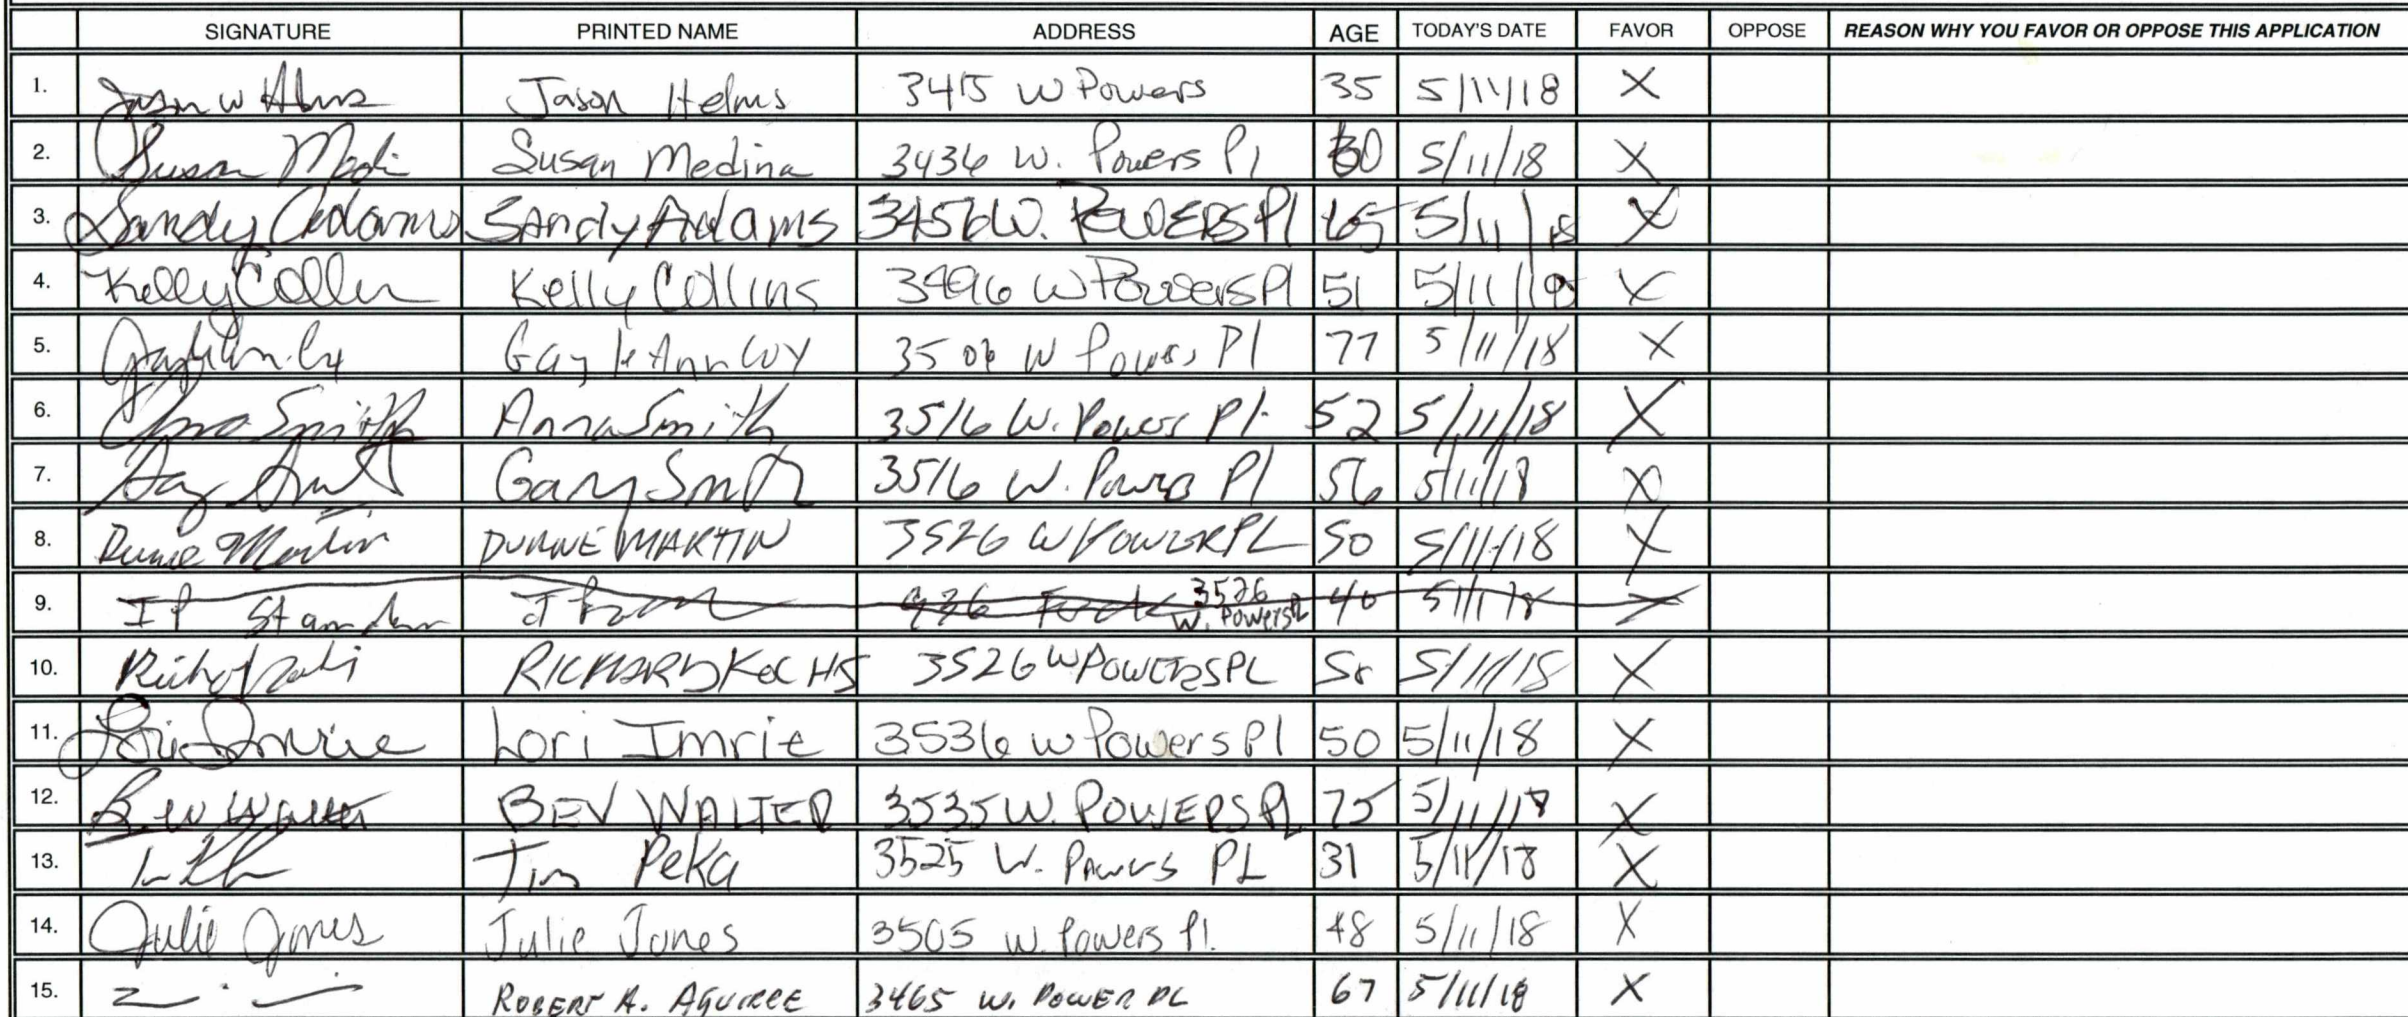 SIGNATURE PRINTED NAME ADDRESS AGE TODAY'S DATE FAVOR OPPOSE REASON WHY YOU FAVOR OR OPPOSE THIS APPLICATION
1. Jason W Helms Jason Helms 3415 W Powers 35 5/11/18 X
2. Susan Medi Susan Medina 3436 W. Powers Pl 60 5/11/18 X
3. Sandy Adams Sandy Adams 3456 W. POWERS Pl 65 5/11/18 X
4. Kelly Collins Kelly Collins 3496 W Powers Pl 51 5/11/18 X
5. Gayle Ann Coy 3506 W Powers Pl 77 5/11/18 X
6. Anna Smith Anna Smith 3516 W. Powers Pl. 52 5/11/18 X
7. Gary Smith Gary Smith 3516 W. Powers Pl 56 5/11/18 X
8. Duane Martin DUANE MARTIN 3526 W POWER PL 50 5/11/18 X
9. 3526 W. Powers Pl 40 5/11/18 X
10. RICHARD KOCHS 3526 W POWERS PL 5/11/18 X
11. Lori Imrie Lori Imrie 3536 W Powers Pl 50 5/11/18 X
12. Bev Walter BEV WALTER 3535 W. POWERS PL 75 5/11/18 X
13. Tim Peka 3525 W. Powers PL 31 5/11/18 X
14. Julie Jones Julie Jones 3505 W. Powers Pl. 48 5/11/18 X
15. ROBERT A. AGUIRRE 3465 W. POWER PL 67 5/11/18 X